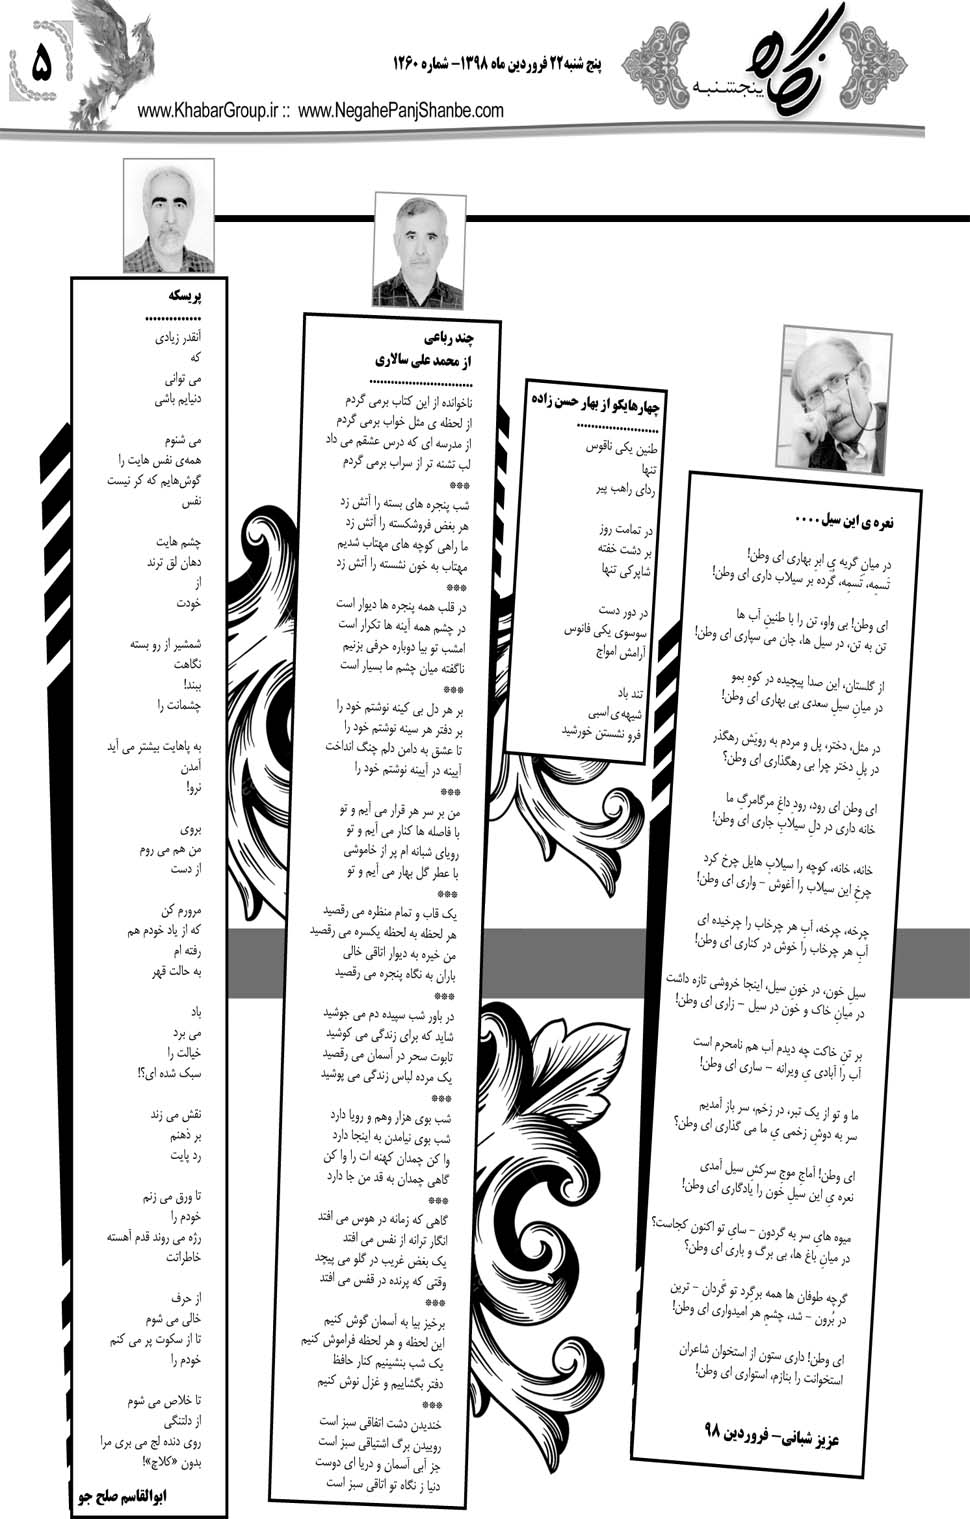 نگاه
پنجشنبه
پنج شنبه ۲۲ فروردین ماه ۱۳۹۸- شماره ۱۲۶۰
۵
www.KhabarGroup.ir :: www.NegahePanjShanbe.com
نعره ی این سیل ....
در میانِ گریه یِ ابرِ بهاری ای وطن!
تَسمِه، تَسمِه، گُرده بر سیلاب داری ای وطن!
ای وطن! بی واو، تن را با طنینِ آب ها
تن به تن، در سیل ها، جان می سپاری ای وطن!
از گلستان، این صدا پیچیده در کوهِ بمو
در میانِ سیلِ سعدی بی بهاری ای وطن!
در مثل، دختر، پل و مردم به رویَش رهگذر
در پلِ دختر چرا بی رهگذاری ای وطن؟
ای وطن ای رود، رودِ داغِ مرگامرگِ ما
خانه داری در دلِ سیلابِ جاری ای وطن!
خانه، خانه، کوچه را سیلابِ هایل چرخ کرد
چرخِ این سیلاب را آغوش - واری ای وطن!
چرخه، چرخه، آبِ هر چرخاب را چرخیده ای
آبِ هر چرخاب را خوش در کناری ای وطن!
سیلِ خون، در خونِ سیل، اینجا خروشی تازه داشت
در میانِ خاک و خون در سیل - زاری ای وطن!
بر تنِ خاکت چه دیدم آب هم نامحرم است
آب را آبادی یِ ویرانه - ساری ای وطن!
ما و تو از یک تبر، در زخم، سر باز آمدیم
سر به دوشِ زخمی یِ ما می گذاری ای وطن؟
ای وطن! آماجِ موجِ سرکشِ سیل آمدی
نعره یِ این سیلِ خون را یادگاری ای وطن!
میوه های سر به گردون - سایِ تو اکنون کجاست؟
در میانِ باغ ها، بی برگ و باری ای وطن؟
گرچه طوفان ها همه برگِرد تو گَردان - ترین
در بُرون - شد، چشمِ هر امیدواری ای وطن!
ای وطن! داری ستون از استخوان شاعران
استخوانت را بنازم، استواری ای وطن!
عزیز شبانی- فروردین ۹۸
چهارهایکو از بهار حسن زاده
طنین یکی ناقوس
تنها
ردای راهب پیر
در تمامت روز
بر دشت خفته
شاپرکی تنها
در دور دست
سوسوی یکی فانوس
آرامش امواج
تند باد
شیهه‌ی اسبی
فرو نشستن خورشید
چند رباعی
از محمد علی سالاری
ناخوانده از این کتاب برمی گردم
از لحظه ی مثل خواب برمی گردم
از مدرسه ای که درس عشقم می داد
لب تشنه تر از سراب برمی گردم
***
شب پنجره های بسته را آتش زد
هر بغض فروشکسته را آتش زد
ما راهی کوچه های مهتاب شدیم
مهتاب به خون نشسته را آتش زد
***
در قلب همه پنجره ها دیوار است
در چشم همه آینه ها تکرار است
امشب تو بیا دوباره حرفی بزنیم
ناگفته میان چشم ما بسیار است
***
بر هر دل بی کینه نوشتم خود را
بر دفتر هر سینه نوشتم خود را
تا عشق به دامن دلم چنگ انداخت
آیینه در آیینه نوشتم خود را
***
من بر سر هر قرار می آیم و تو
با فاصله ها کنار می آیم و تو
رویای شبانه ام پر از خاموشی
با عطر گل بهار می آیم و تو
***
یک قاب و تمام منظره می رقصید
هر لحظه به لحظه یکسره می رقصید
من خیره به دیوار اتاقی خالی
باران به نگاه پنجره می رقصید
***
در باور شب سپیده دم می جوشید
شاید که برای زندگی می کوشید
تابوت سحر در آسمان می رقصید
یک مرده لباس زندگی می پوشید
***
شب بوی هزار وهم و رویا دارد
شب بوی نیامدن به اینجا دارد
وا کن چمدان کهنه ات را وا کن
گاهی چمدان به قد من جا دارد
***
گاهی که زمانه در هوس می افتد
انگار ترانه از نفس می افتد
یک بغض غریب در گلو می پیچد
وقتی که پرنده در قفس می افتد
***
برخیز بیا به آسمان گوش کنیم
این لحظه و هر لحظه فراموش کنیم
یک شب بنشینیم کنار حافظ
دفتر بگشاییم و غزل نوش کنیم
***
خندیدن دشت اتفاقی سبز است
روییدن برگ اشتیاقی سبز است
جز آبی آسمان و دریا ای دوست
دنیا ز نگاه تو اتاقی سبز است
پریسکه
آنقدر زیادی
که
می توانی
دنیایم باشی
می شنوم
همه‌ی نفس هایت را
گوش‌هایم که کر نیست
نفس
چشم هایت
دهان لق ترند
از
خودت
شمشیر از رو بسته
نگاهت
ببند!
چشمانت را
به پاهایت بیشتر می آید
آمدن
نرو!
بروی
من هم می روم
از دست
مرورم کن
که از یاد خودم هم
رفته ام
به حالت قهر
باد
می برد
خیالت را
سبک شده ای؟!
نقش می زند
بر ذهنم
رد پایت
تا ورق می زنم
خودم را
رژه می روند قدم آهسته
خاطراتت
از حرف
خالی می شوم
تا از سکوت پر می کنم
خودم را
تا خلاص می شوم
از دلتنگی
روی دنده لج می بری مرا
بدون «کلاچ»!
ابوالقاسم صلح جو